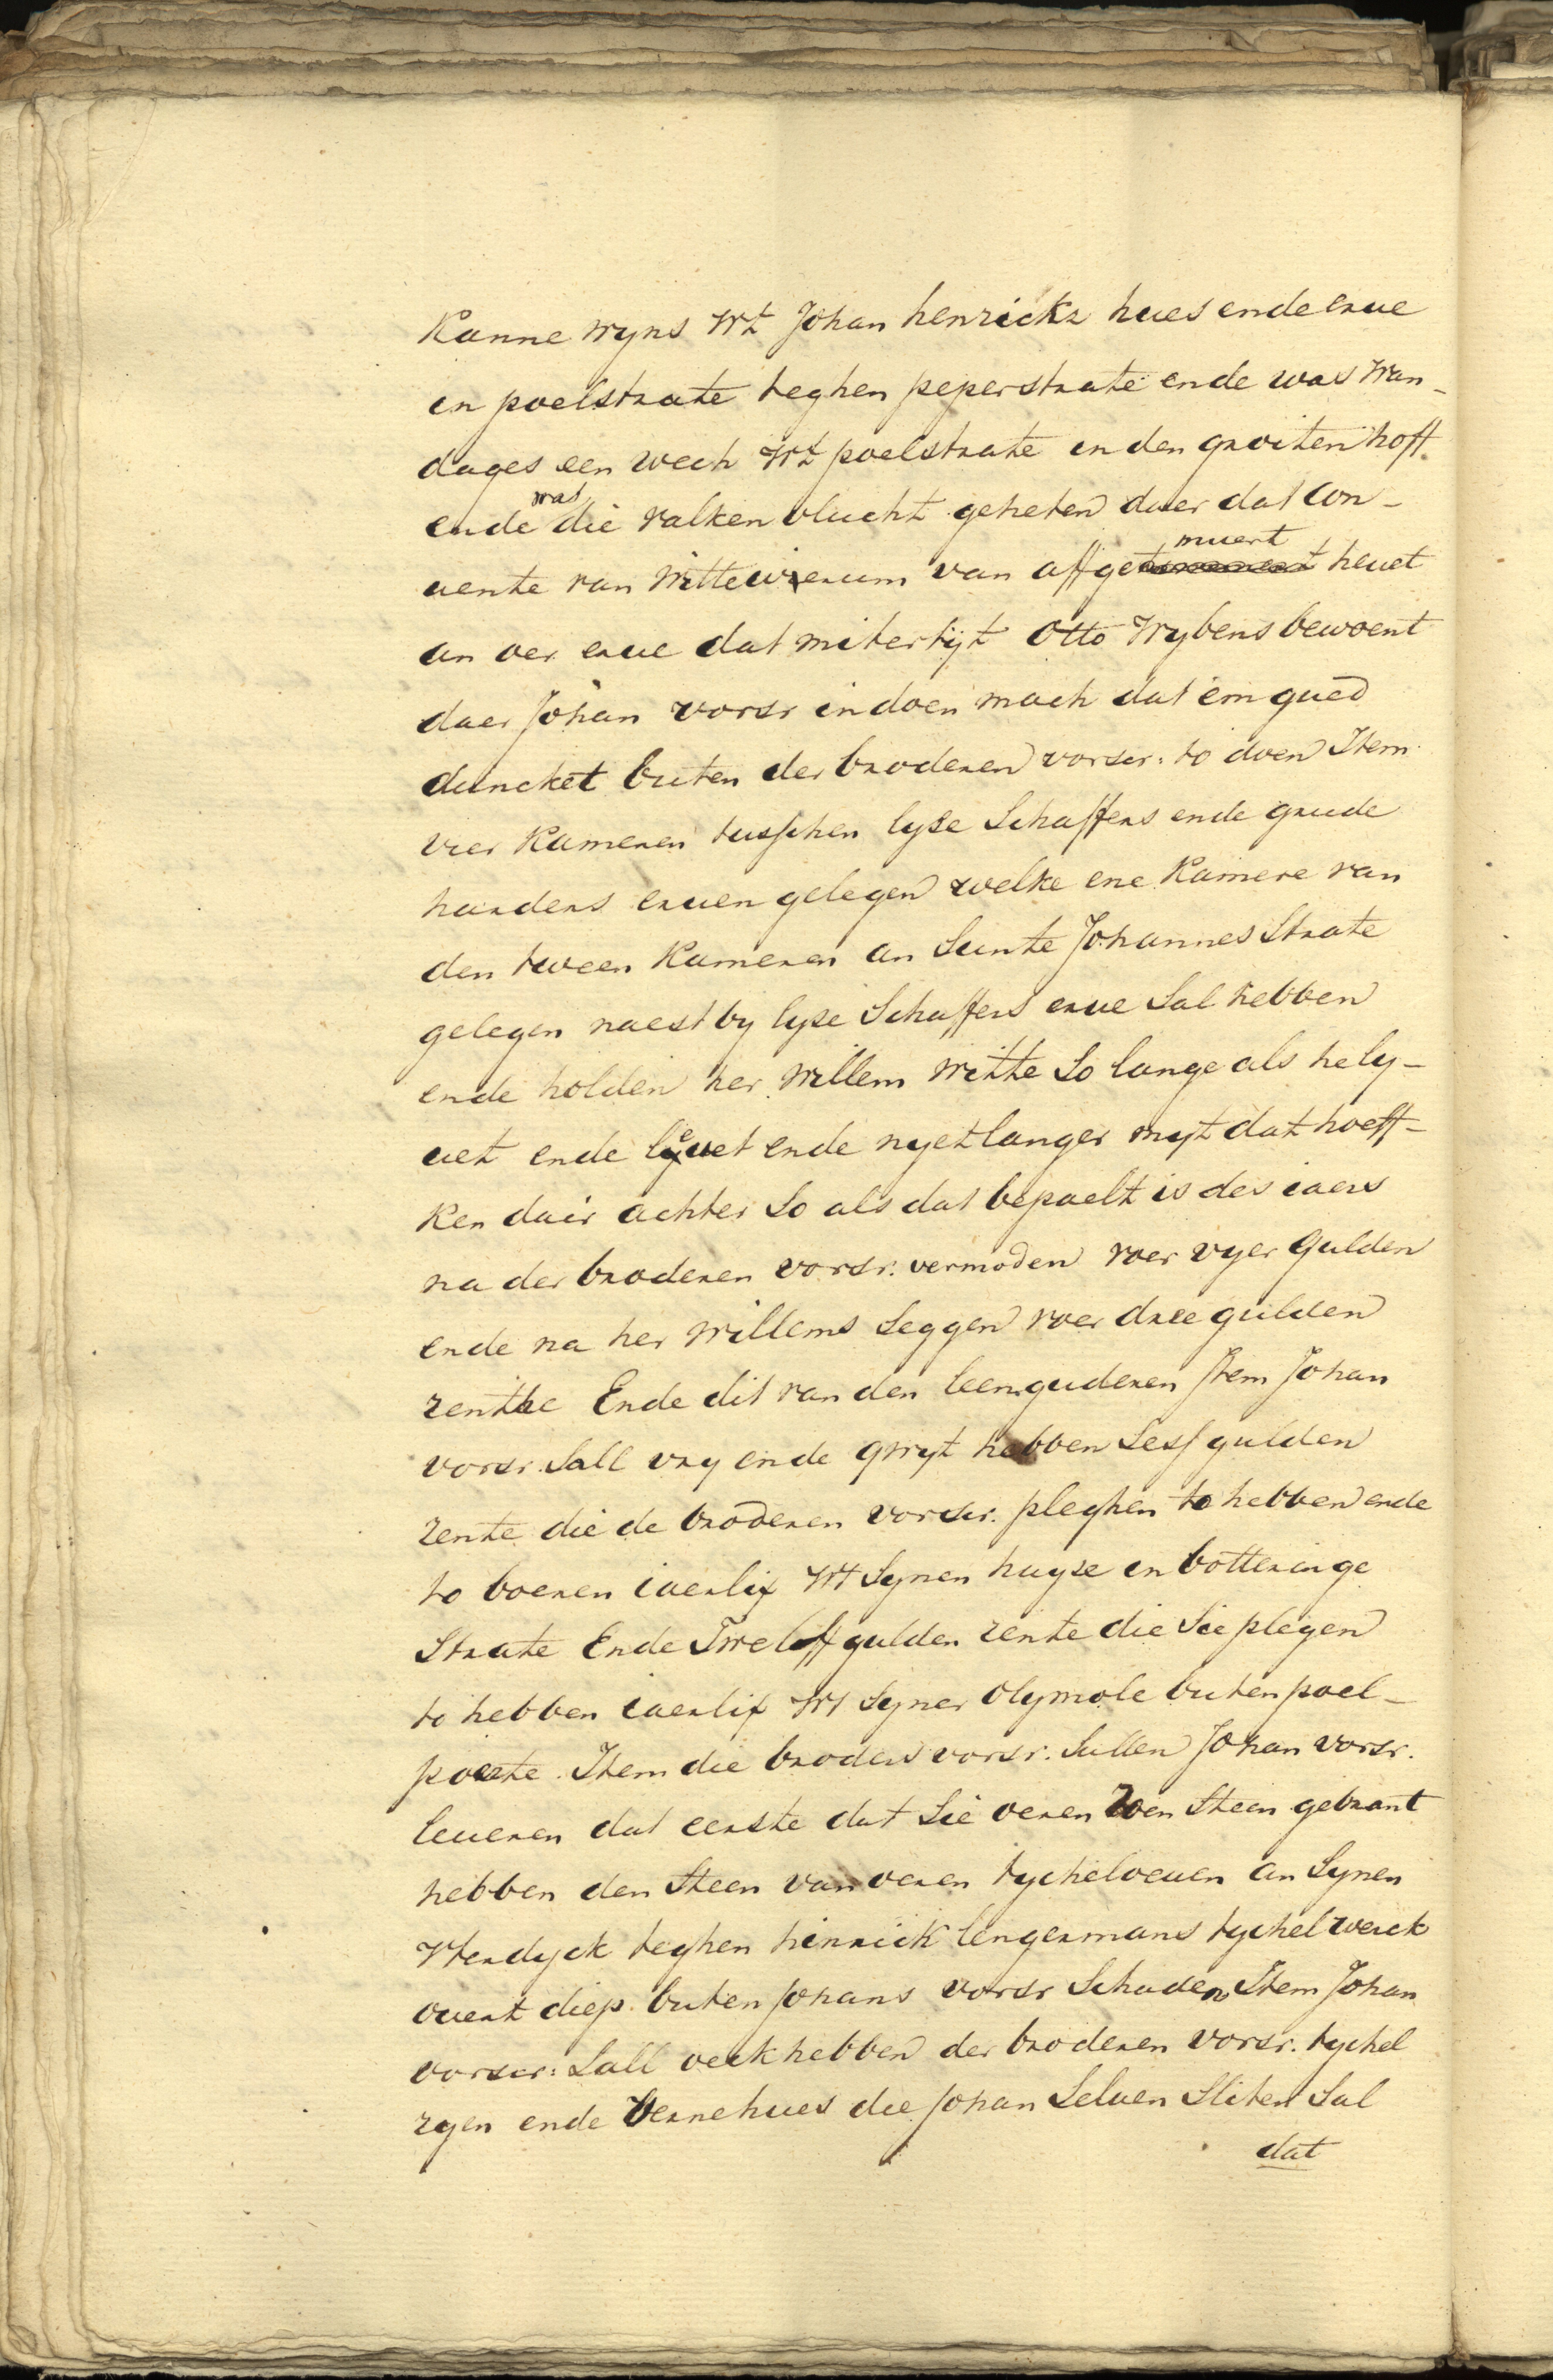 Kanne wyns Wt Johan henrickz hues ende erue
in poelstrate teghen peperstrate ende was wan-
dages een wech Wt poelstrate in den groiten hoff
ende was die valken vlucht geheten daer dat Con-
uente van Wittewierum van affgemuert heuet
an oer erue dat mitertijt Otto Wybens bewoent
daer Johan vorsr in doen mach dat em gued
duncket buten der broderen vorscr: to doen Item
vier Kameren tusschen lyse Schaffers ende grude
harders eruen gelegen welke ene Kamere van
den tween Kameren an Sunte Johannes Strate
gelegen naest by lyse Schaffers erue Sal hebben
ende holden her Willem Witte So lange als he ly-
uet ende leuet ende nyet langer myt dat hoeff-
ken dair achter So als dat bepaelt is des iaers
na der broderen vorsr. vermoden voer vyer gulden
ende na her Willems Seggen voer dree gulden
renthe Ende dit van den leenguderen Item Johan
vorsr. Sall vry ende qwyt hebben Sess gulden
rente die de broderen vorscr. pleghen to hebben ende
to boeren iaerlix Wt Synen huyse in botteringe
Strate Ende Tweleff gulden rente die Sie plegen
to hebben iaerlix Wt Syner Olymole buten poel-
poerte. Item die broders vorsr. Sullen Johan vorsr.
leueren dat eerste dat Sie oeren Steen gebrant
hebben den Steen van oeren tycheloeuen an Synen
Wterdyck teghen hinrick lengermans tychelwerck
ouert diep buten Johans vorsr Schaden Item Johan
vorscr: Sall oeck hebben der broderen vorsr. tychel
ende bernehues die Johan Seluen Sliten Sal
dat